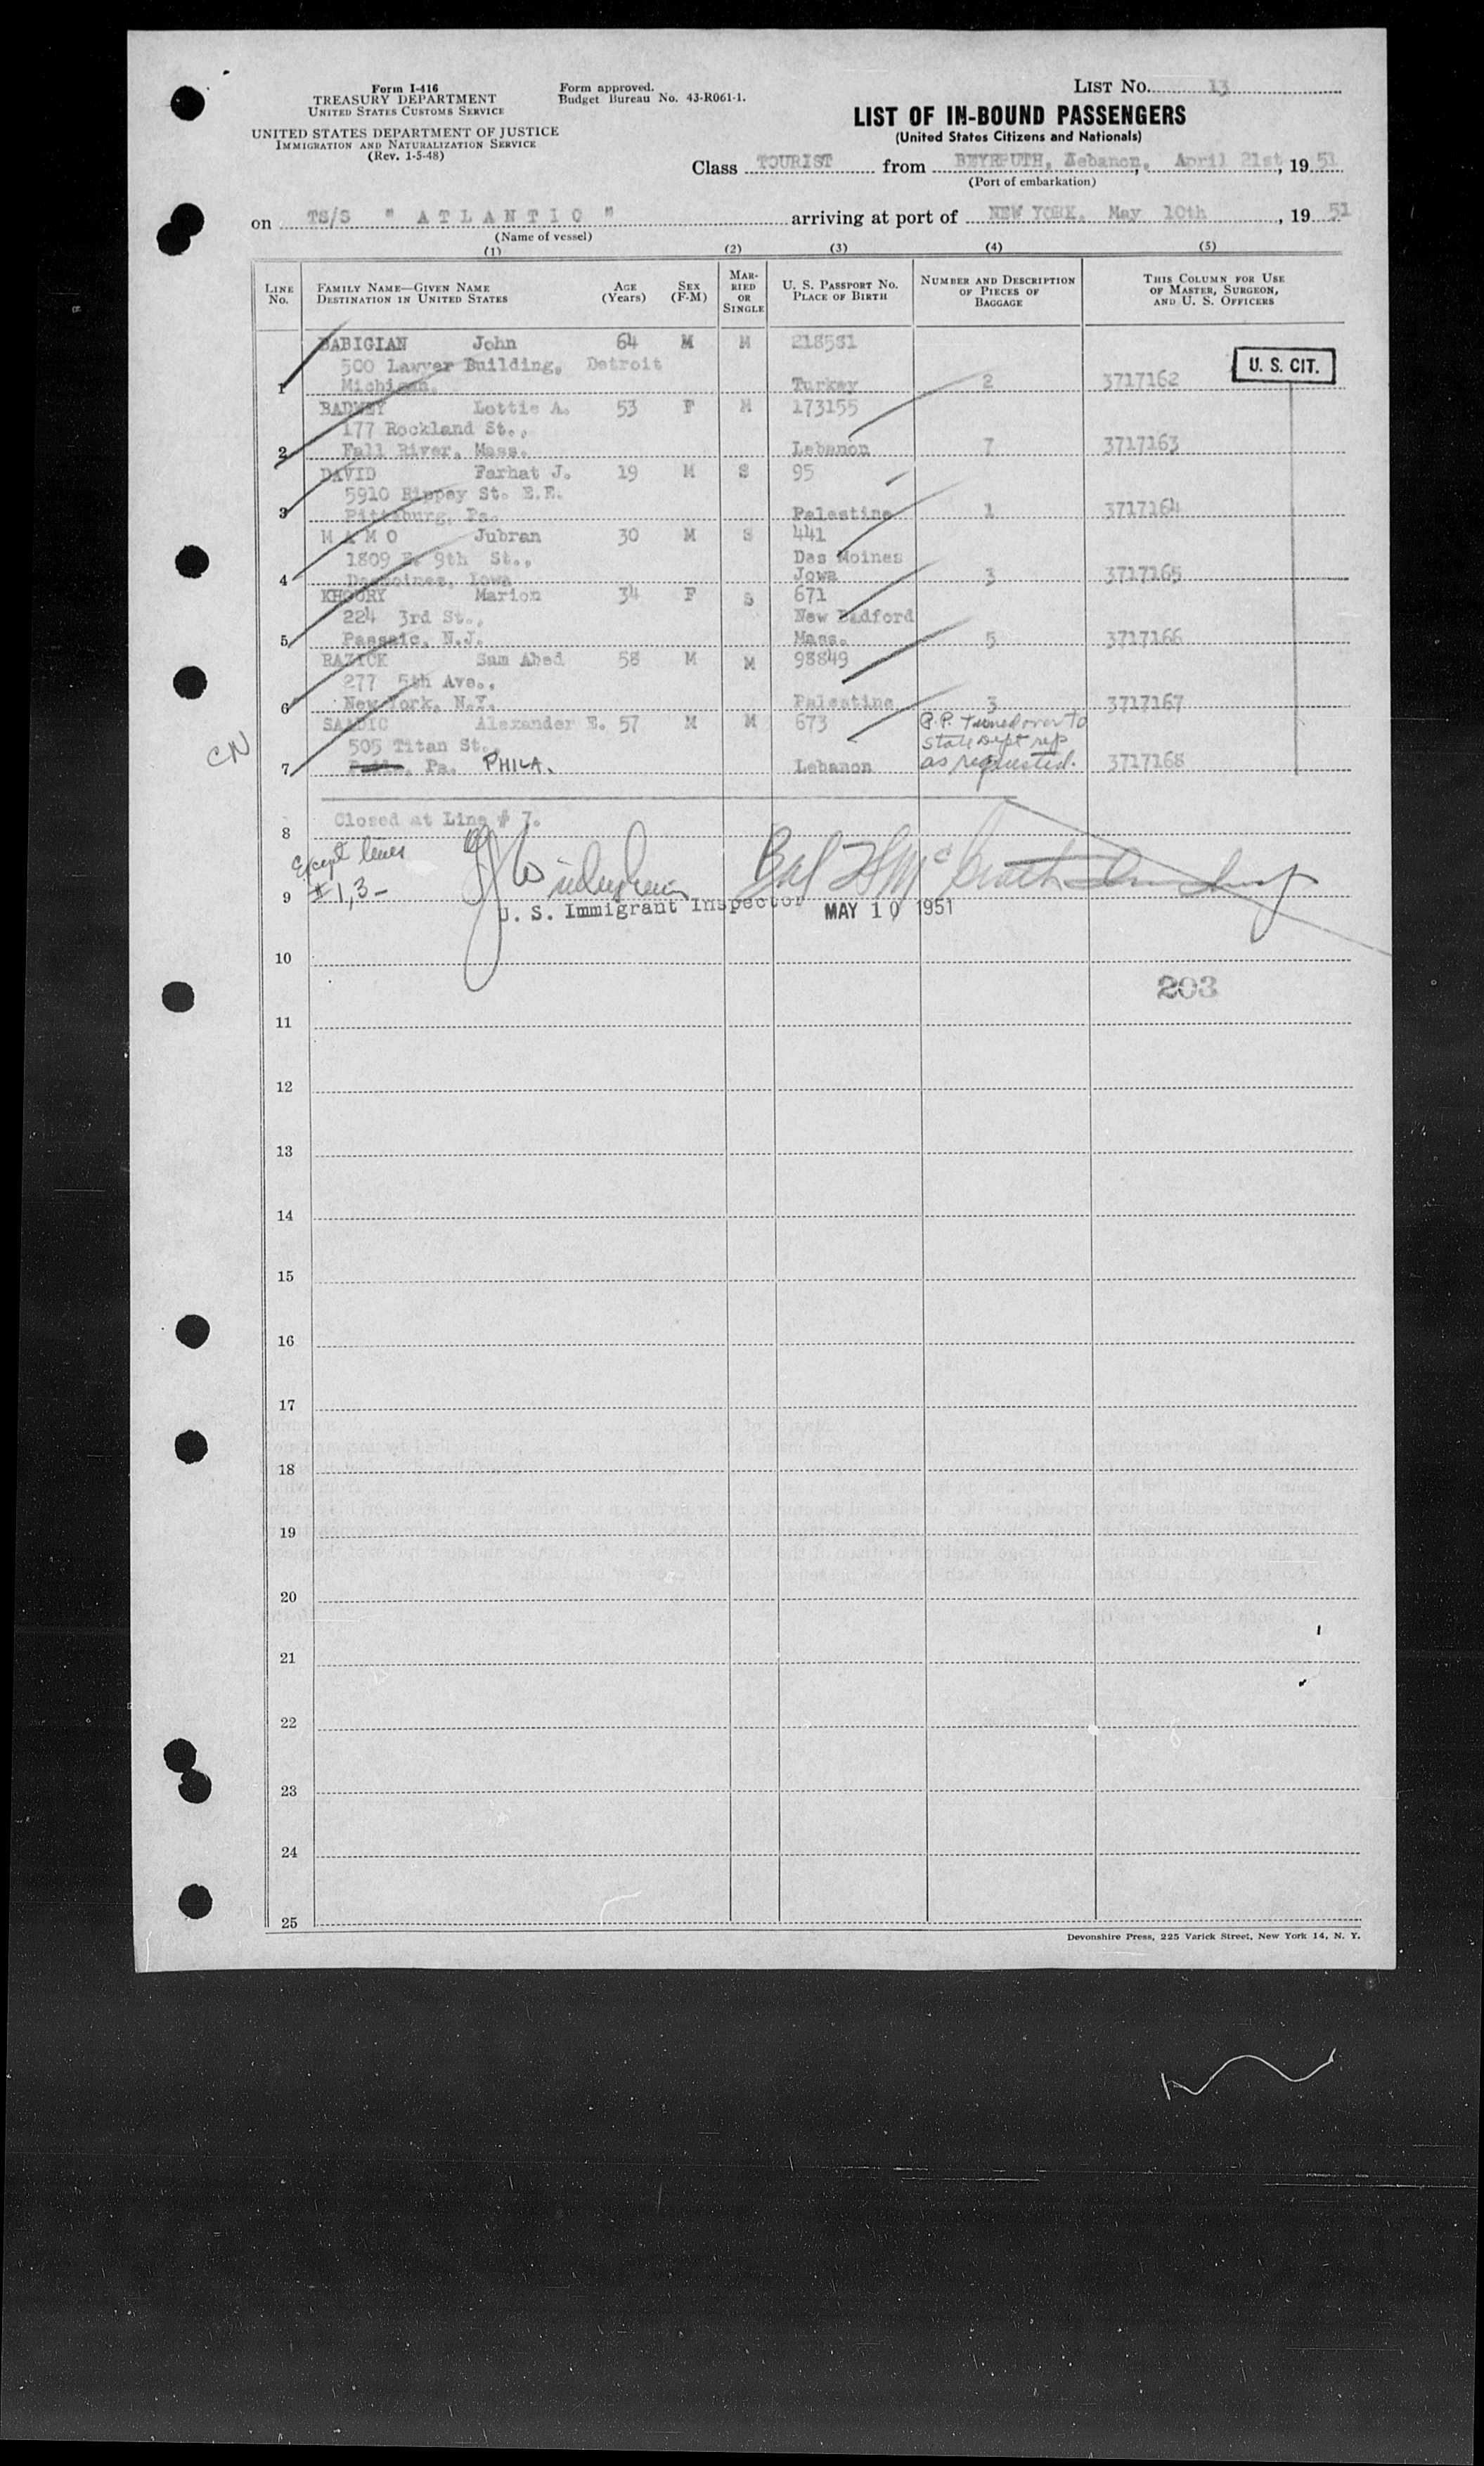 Form I-416
TREASURY DEPARTMENT
UNITED STATES CUSTOMS SERVICE
UNITED STATES DEPARTMENT OF JUSTICE
IMMIGRATION AND NATURALIZATION SERVICE
(Rev. 1-5-48)
Form approved.
Budget Bureau No. 43-R061-1.
LIST NO. 13
LIST OF IN-BOUND PASSENGERS
(United States Citizens and Nationals)
Class TOURIST from BEYROUTH, Lebanon, April 21st, 19 51
(Port of embarkation)
on TS/S " A T L A N T I C " arriving at port of NEW YORK, May 10th, 19 51
(Name of vessel)
(1) (2) (3) (4) (5)
LINE NO.
FAMILY NAME—GIVEN NAME
DESTINATION IN UNITED STATES
AGE (Years)
SEX (F-M)
MARRIED OR SINGLE
U. S. PASSPORT NO.
PLACE OF BIRTH
NUMBER AND DESCRIPTION OF PIECES OF BAGGAGE
THIS COLUMN FOR USE OF MASTER, SURGEON, AND U. S. OFFICERS
BABIGIAN John 64 M M 218581
500 Lawyer Building, Detroit
1 Michigan. Turkey 2 3717162 U. S. CIT.
BADWEY Lottie A. 53 F M 173155
177 Rockland St.,
2 Fall River, Mass. Lebanon 7 3717163
DAVID Farhat J. 19 M S 95
5910 Rippey St. E.E.
3 Pittsburg, Pa. Palestine 1 3717164
M A M O Jubran 30 M S 441
1809 E. 9th St., Des Moines
4 Desmoines, Iowa Jowa 3 3717165
KHOURY Marion 34 F S 671
224 3rd St., New Badford
5 Passaic, N.J. Mass. 5 3717166
RAZICK Sam Abed 58 M M 98849
277 5th Ave.,
6 New York, N.Y. Palestine 3 3717167
SAADIC Alexander E. 57 M M 673 P.P. Turned over to
505 Titan St., State Dept rep
CN 7 Pa. PHILA. Lebanon as requested. 3717168
Closed at Line # 7.
8
Except lines
9 # 1,3-
U. S. Immigrant Inspector MAY 10 1951
10
203
11
12
13
14
15
16
17
18
19
20
21
22
23
24
25
Devonshire Press, 225 Varick Street, New York 14, N. Y.